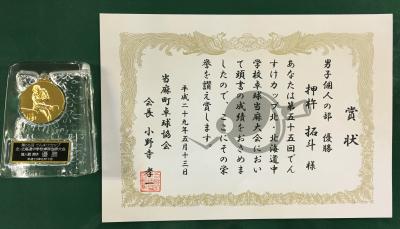 賞状
男子個人の部 優勝
押杵 拓斗 様
あなたは第五十五回でん
すけカップ北・北海道中
学校卓球当麻大会におい
て頭書の成績をおさめま
したので、ここにその栄
誉を讃え賞します
平成二十九年五月十三日
当麻町卓球協会
会長 小野寺 孝一
優勝